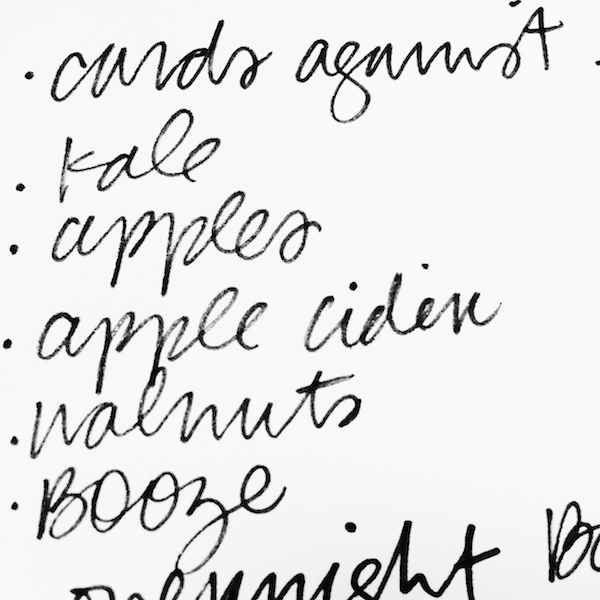 · cards against
· Kale
· apples
· apple cider
· walnuts
· Booze
overnight